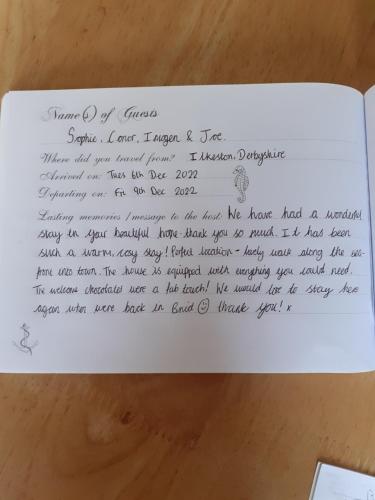 Name(s) of Guests
Sophie, Conor, Imogen & Joe.
Where did you travel from? Ilkeston, Derbyshire
Arrived on: Tues 6th Dec 2022
Departing on: Fri 9th Dec 2022
Lasting memories / message to the host: We have had a wonderful
stay in your beautiful home - thank you so much. It has been
such a warm, cosy stay! Perfect location - lovely walk along the sea-
front into town. The house is equipped with everything you could need.
The welcome chocolates were a fab touch! We would love to stay here
again when were back in Brid ☺ thank you! x